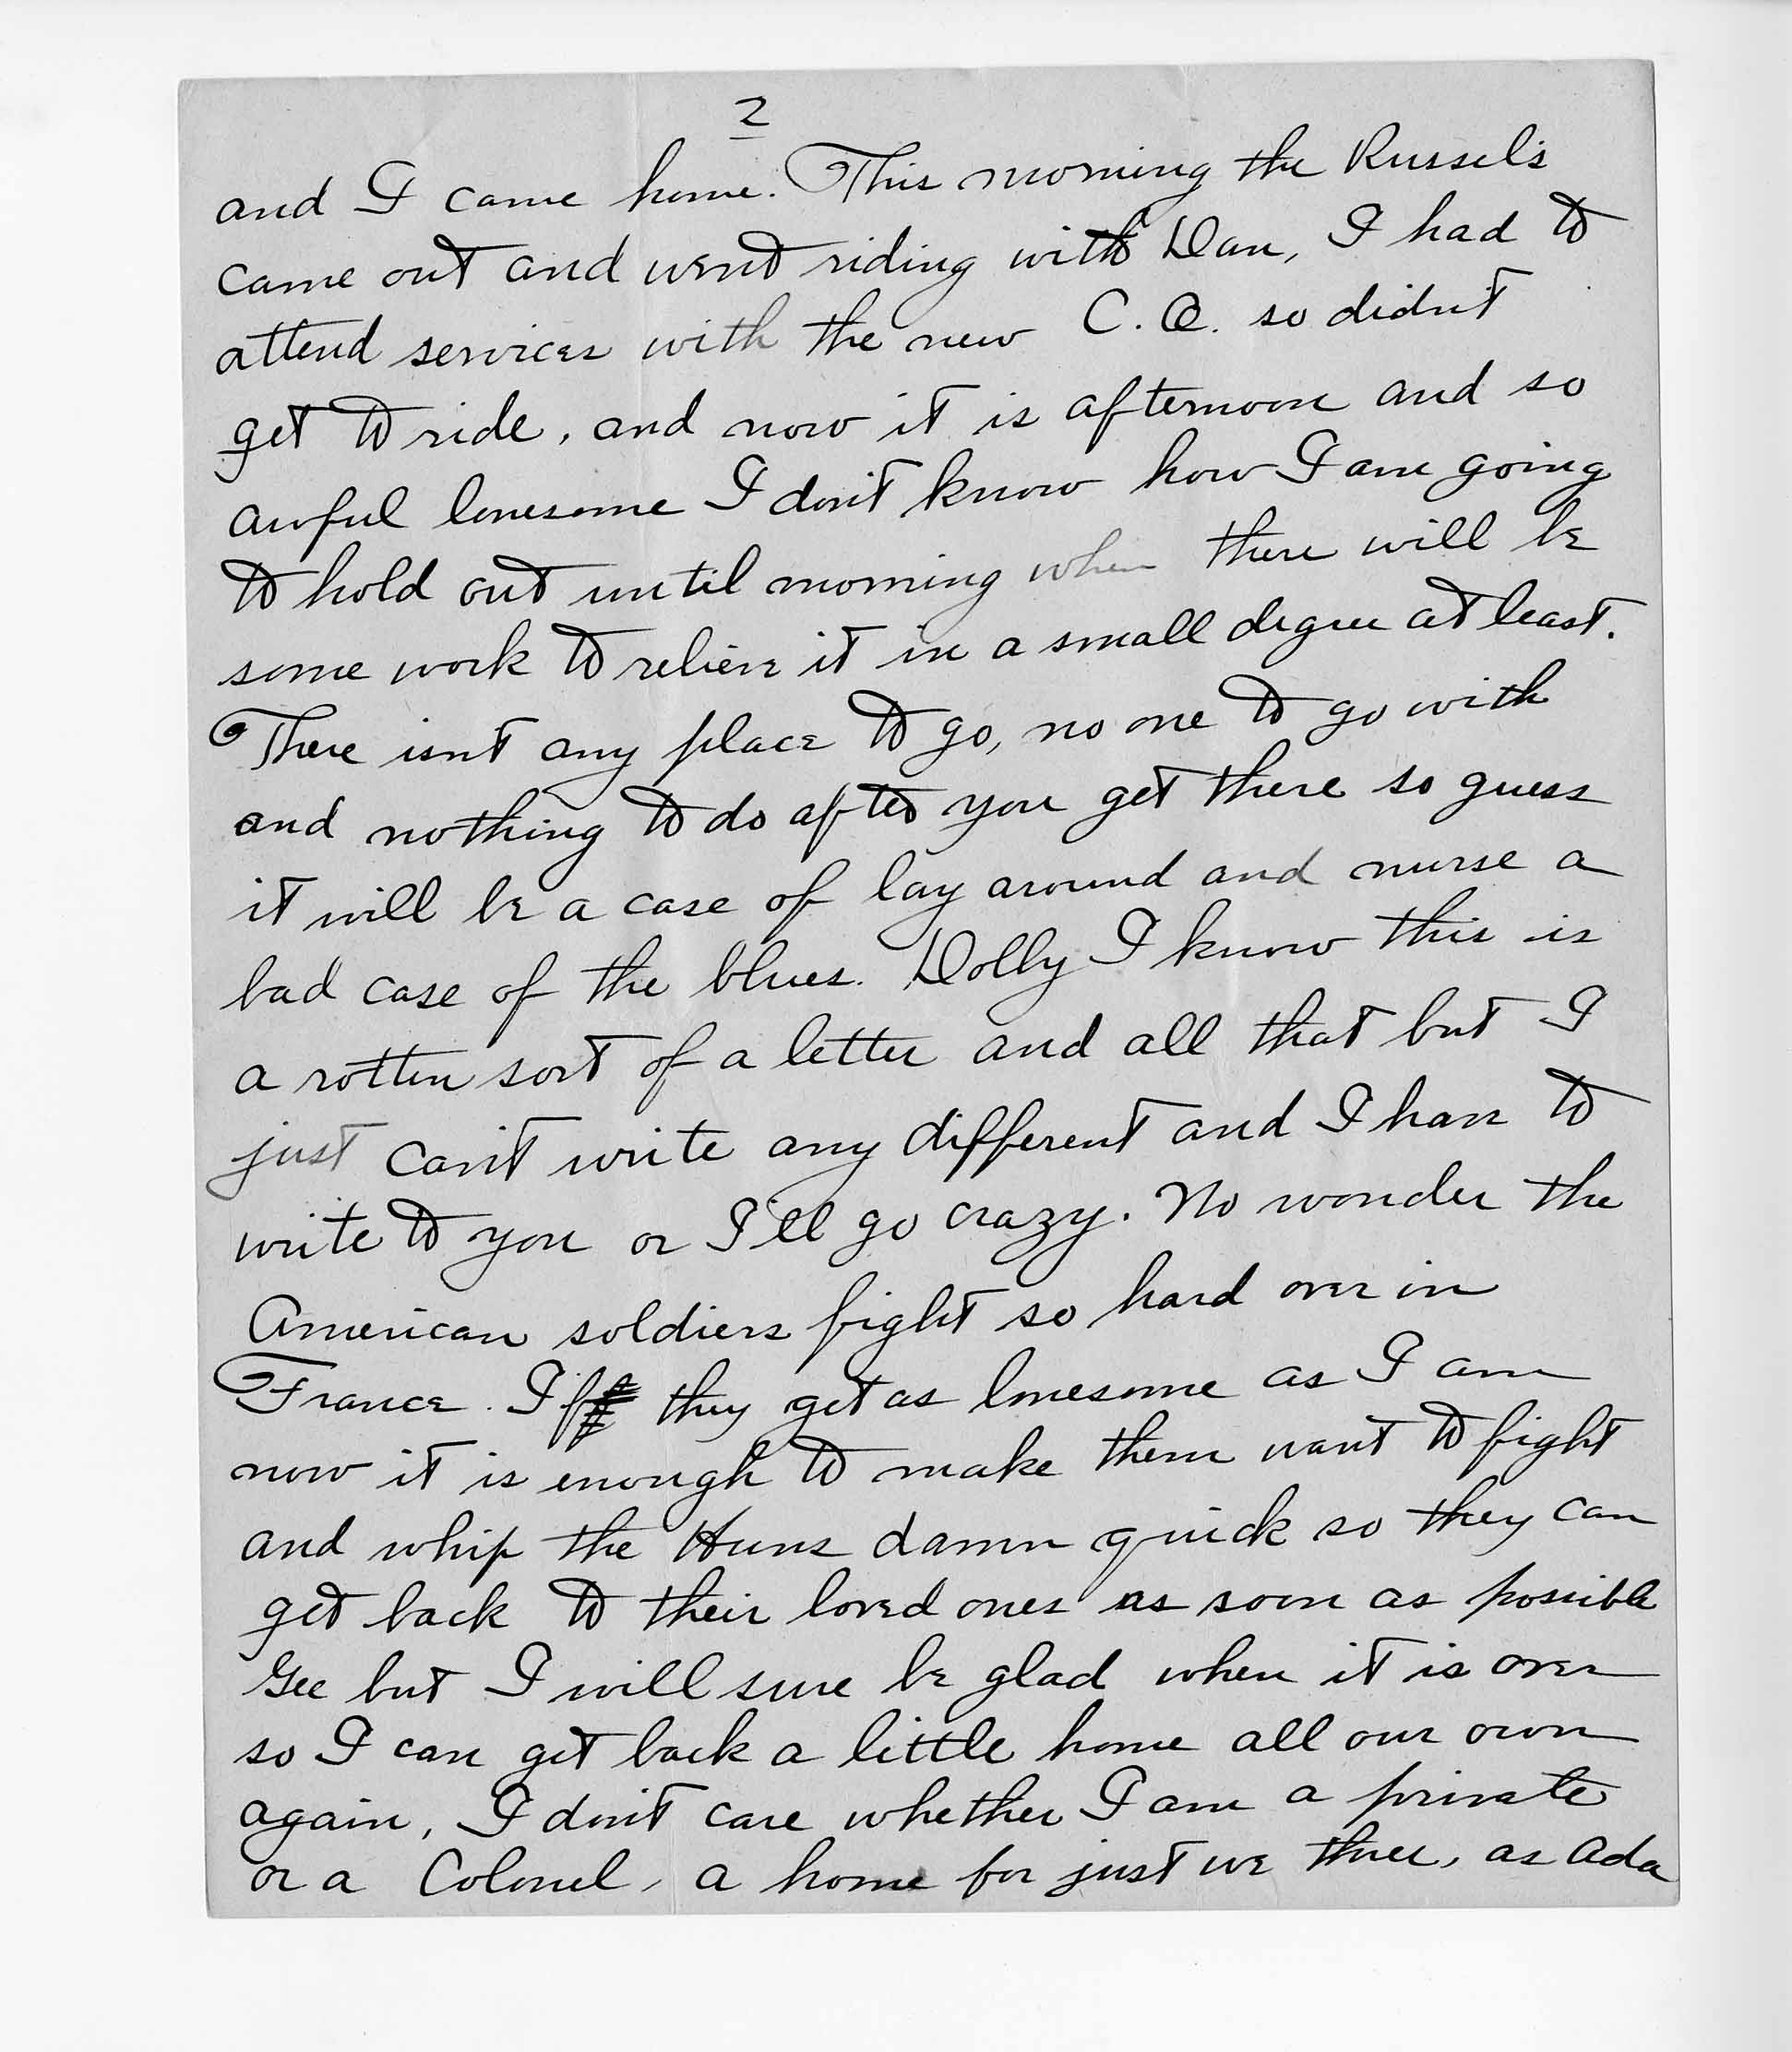 2
and I came home. This morning the Russels
came out and went riding with Dan, I had to
attend services with the new C.O. so didn't
get to ride, and now it is afternoon and so
awful lonesome I don't know how I am going
to hold out until morning when there will be
some work to relieve it in a small degree at least.
There isn't any place to go, no one to go with
and nothing to do after you get there so guess
it will be a case of lay around and nurse a
bad case of the blues. Dolly I know this is
a rotten sort of a letter and all that but I
just can't write any different and I have to
write to you or I'll go crazy. No wonder the
American soldiers fight so hard over in
France. If they get as lonesome as I am
now it is enough to make them want to fight
and whip the Huns damn quick so they can
get back to their loved ones as soon as possible
Gee but I will sure be glad when it is over
so I can get back a little home all our own
again, I don't care whether I am a private
or a Colonel, a home for just we three, as Ada